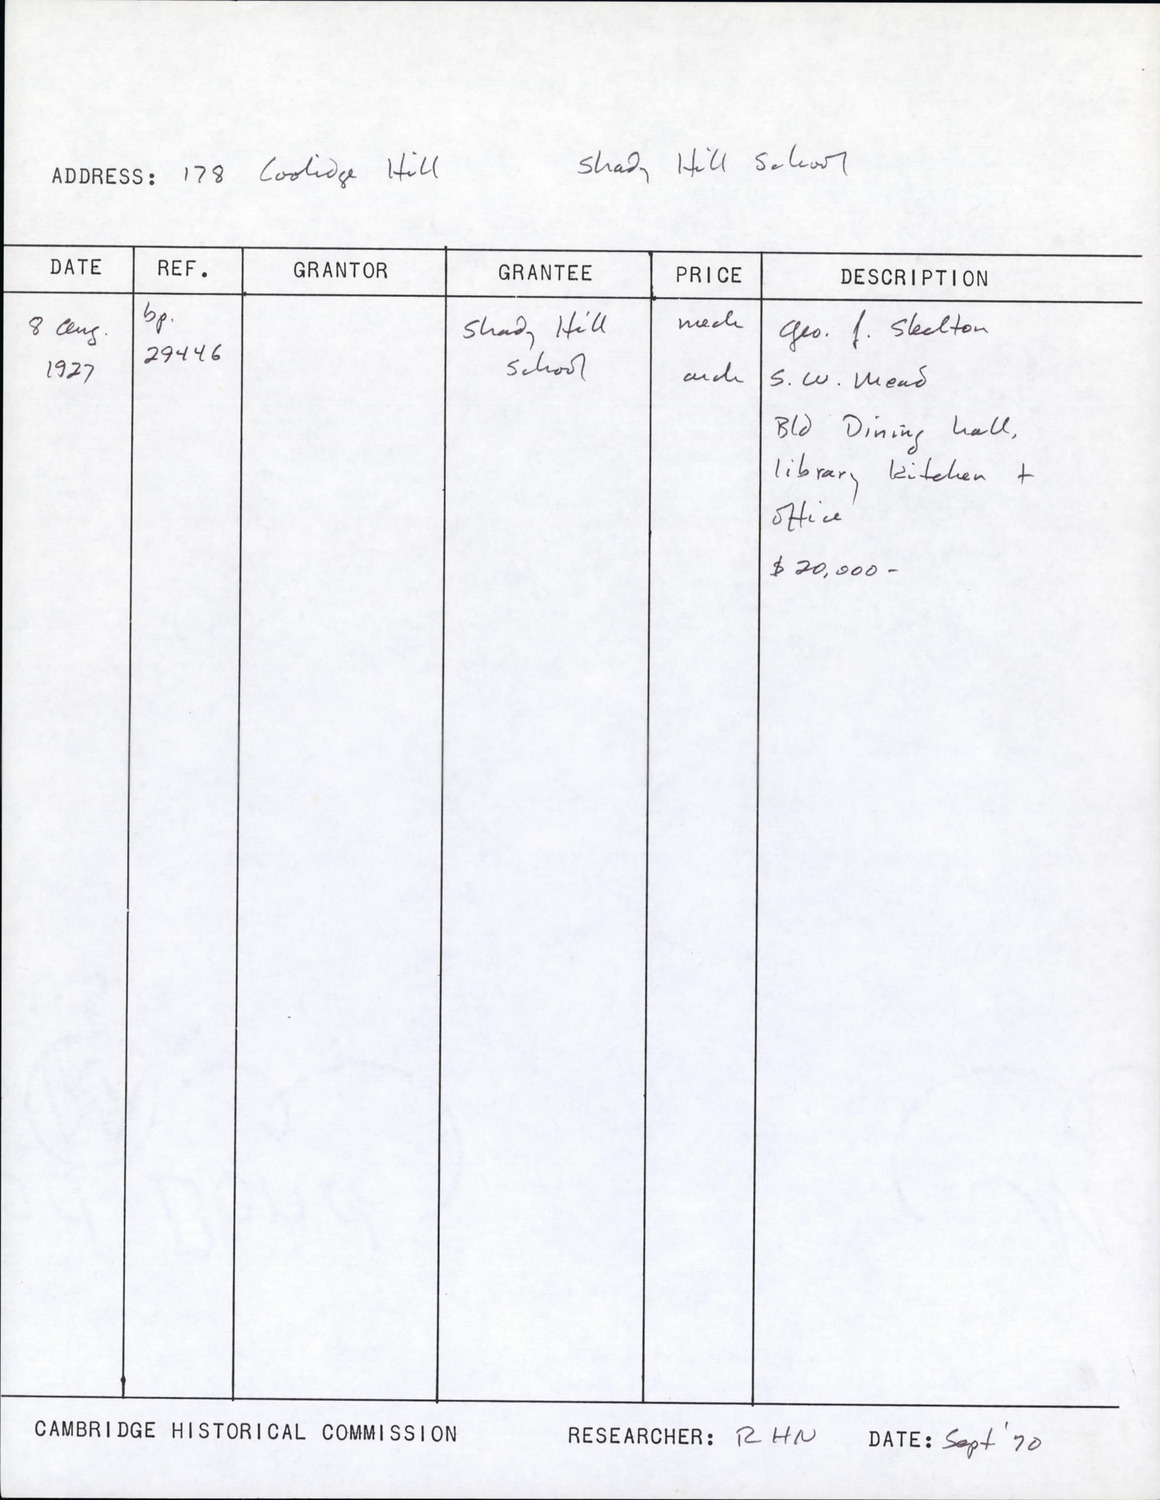 ADDRESS: 178 Coolidge Hill Shady Hill School
DATE REF. GRANTOR GRANTEE PRICE DESCRIPTION
8 Aug. bp. Shady Hill mech Geo. J. Skelton
1927 29446 School arch S. W. Mead
Bld Dining hall,
library kitchen +
office
$ 20,000 -
CAMBRIDGE HISTORICAL COMMISSION RESEARCHER: RHN DATE: Sept '70